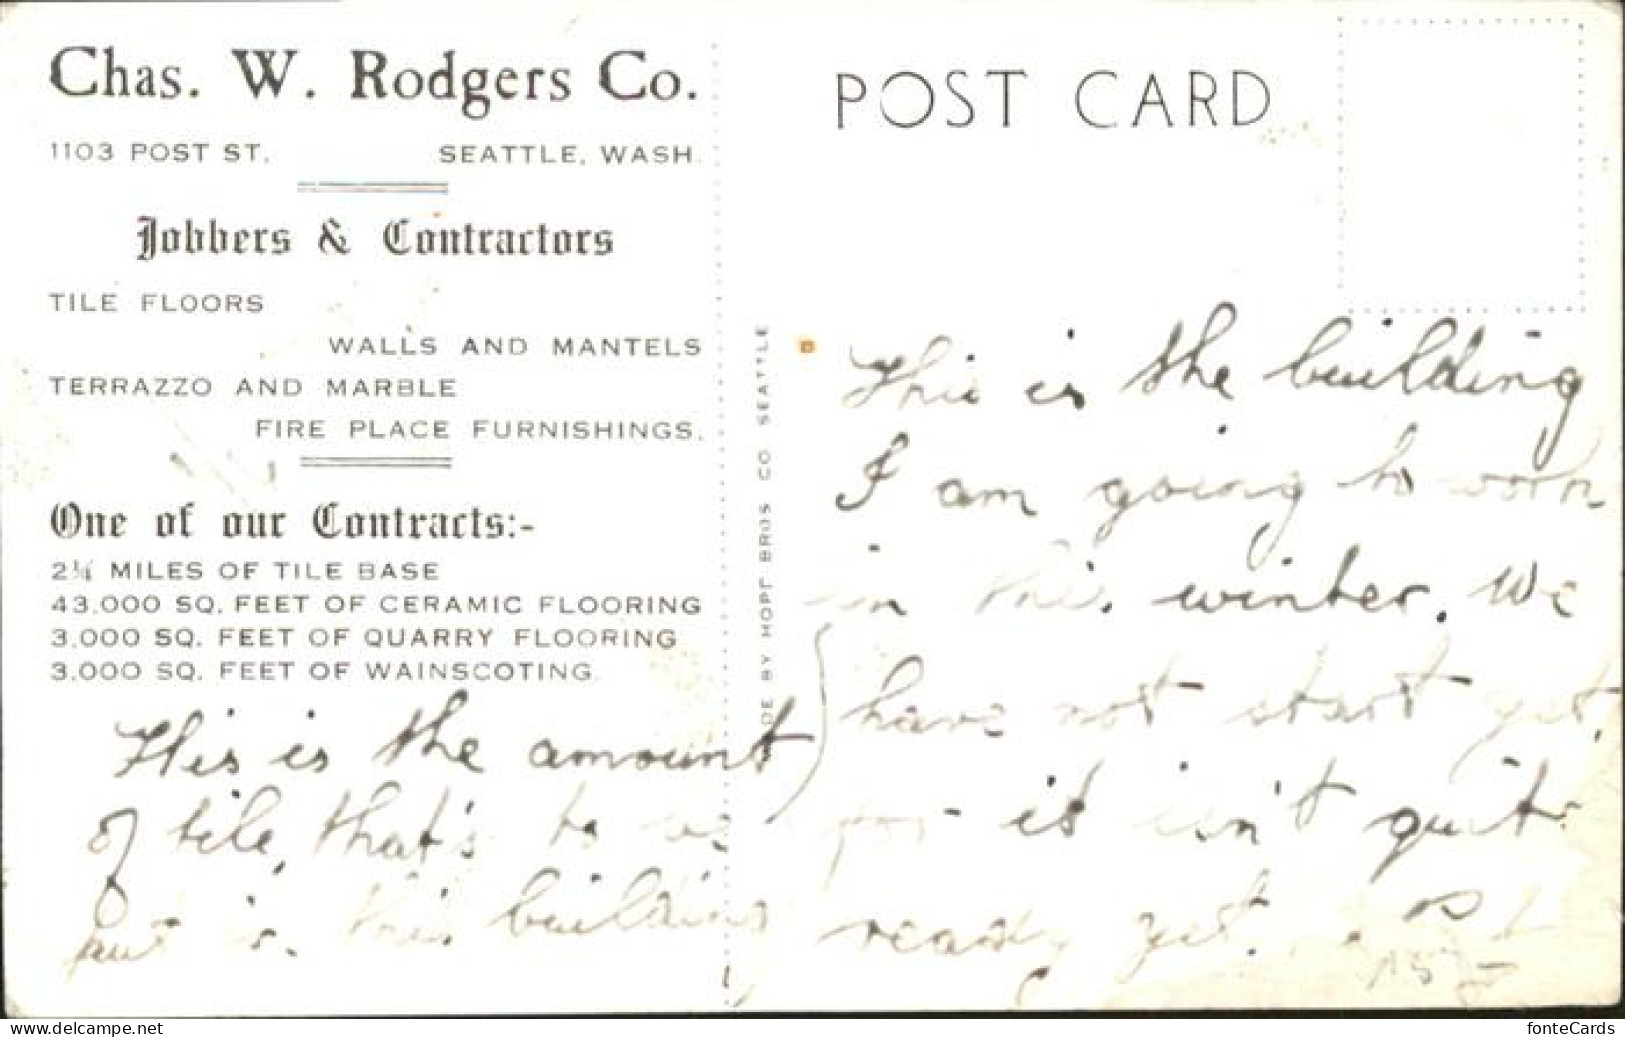 Chas. W. Rodgers Co.
1103 POST ST. SEATTLE, WASH.
Jobbers & Contractors
TILE FLOORS
WALLS AND MANTELS
TERRAZZO AND MARBLE
FIRE PLACE FURNISHINGS.
One of our Contracts:-
2¼ MILES OF TILE BASE
43,000 SQ. FEET OF CERAMIC FLOORING
3,000 SQ. FEET OF QUARRY FLOORING
3,000 SQ. FEET OF WAINSCOTING.
This is the amount
of tile, that's to be
put in this building
MADE BY HOPF BROS CO SEATTLE
POST CARD
This is the building
I am going to work
in this winter. We
have not start yet,
for it isn't quite
ready yet.
www.delcampe.net
fonteCards